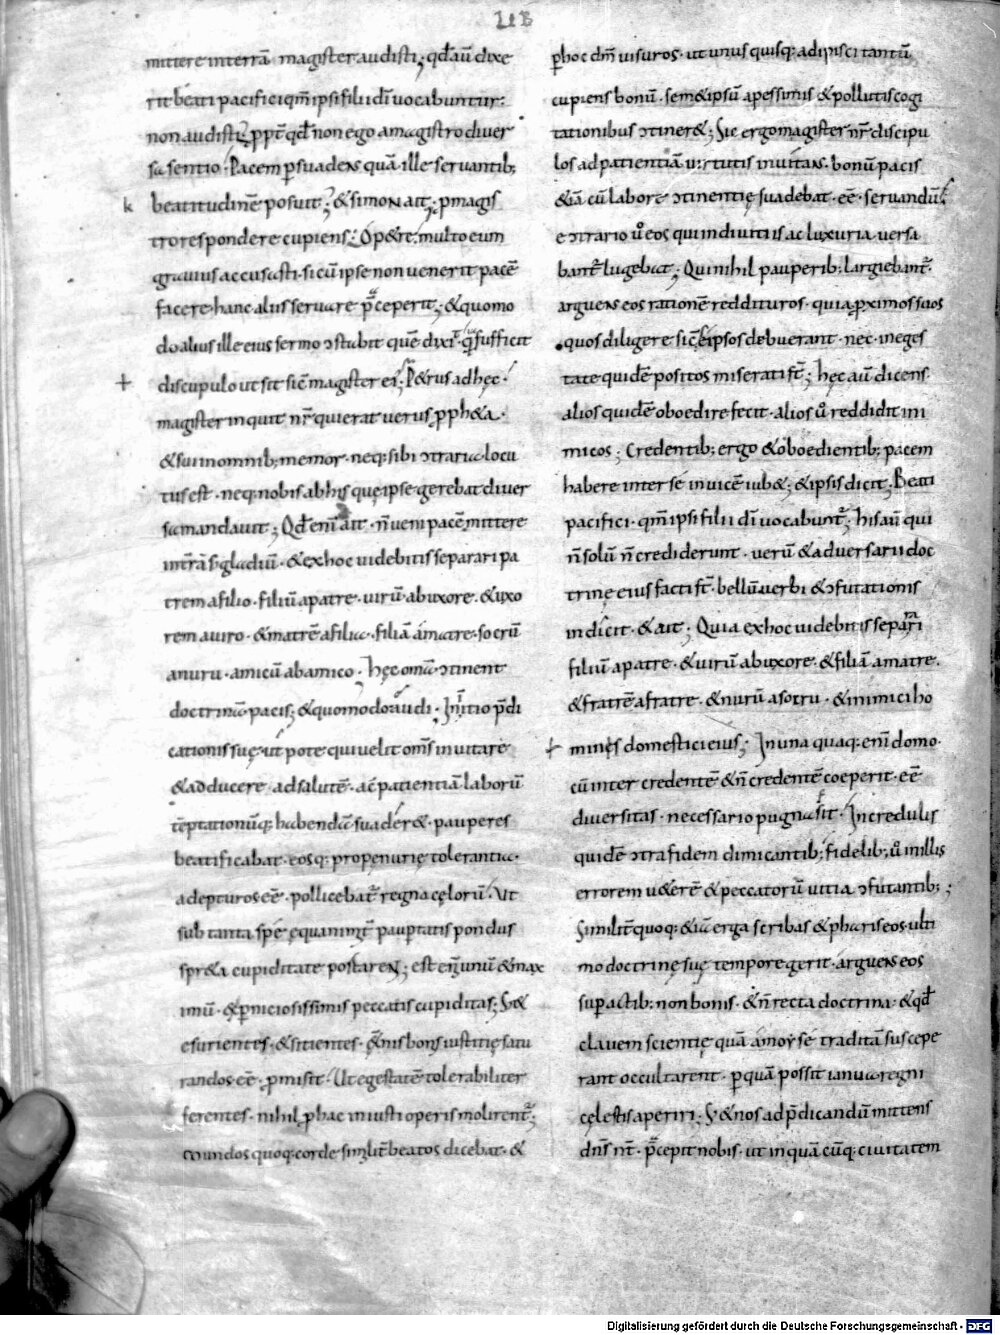 LIB
mittere in terrã magister audisti; qđ aũ dixe
rit beati pacifici qm̃ ipsi filii dī uocabuntur:
non audisti; ꝓpt̃ qđ non ego a magistro diuer
sa sentio. Pacem ꝑsuadens quã ille seruantib;
k beatitudinẽ posuit; & simon ait; ꝓ magis
tro respondere cupiens; O p&re; multo eum
grauius accusasti. si cũ ipse non uenerit pacẽ
facere. hanc alus seruare p̃ceperit; & quomo
do alius ille eius sermo ɔstabit quẽ dixit. qa sufficit
+ discupulo ut sit sic̃ magister ei; P&rus ad hęc.
magister inquit nr̃ qui erat uerus ꝓph&a.
& sui in omnib; memor. neq; sibi ɔtraria locu
tus est. neq; nobis ab his quę ipse gerebat diuer
sa mandauit; Qđ enĩ ait. ñ ueni pacẽ mittere
in t̃rã s; gladiũ. & ex hoc uidebitis separari pa
trem a filio. filiũ a patre. uirũ ab uxore. & uxo
rem a uiro. & matrẽ a filia. filiã a matre. socrũ
a nuru. amicũ ab amico. hęc om̃a ɔtinent
doctrinã pacis; & quomodo audi. Initio p̃di
cationis suę. ut pote qui uelit om̃s inuitare
& adducere ad salutẽ. ac̃ patientiã laborũ
tẽptationũq; habendã suader&. pauperes
beatificabat. eosq; pro penurię tolerantia.
adepturos eẽ. pollicebat̃ regna cęlorũ. Ut
sub tanta spe. ęquanimit̃ paupertatis pondus
spr&a cupiditate portarent; est em̃ unũ & max
imũ. & ꝑniciosissimis peccatis cupiditas; S; &
esurientes. & sitientes. ęt̃nis bonis iustitię satu
randos eẽ. ꝓmisit. Ut egestatẽ tolerabiliter
ferentes. nihil ꝓ hac iniusti operis molirent̃;
mundos quoq; corde similit̃ beatos dicebat. &
ꝑ hoc dm̃ uisuros. ut unus quisq; adipisci tantũ
cupiens bonũ. sem& ipsũ a pessimis & pollutis cogi
tationibus ɔtiner&; Sic ergo magister nr̃ discipu
los ad patientiã uirtutis inuitans. bonũ pacis
&iã cũ labore ɔtinentię suadebat. eẽ. seruandũ;
e ɔtrario ů eos qui in diuitiis ac luxuria uersa
bant̃ lugebat; Qui nihil pauperib; largiebant̃.
arguens eos rationẽ reddituros. quia ꝓximos suos
quos diligere sic̃ se ipsos debuerant. nec in eges
tate quidẽ positos miserati st̃; hęc aũ dicens.
alios quidẽ oboedire fecit. alios ů reddidit ini
micos; Credentib; ergo & oboedientib; pacem
habere inter se inuicẽ iub&; & ipsis dicit. Beati
pacifici. qm̃ ipsi filii dī uocabunt̃; his aũ qui
ñ solũ ñ crediderunt. uerũ & aduersarii doc
trinę eius facti st̃. bellũ uerbi & ɔfutationis
indicit. & ait; Quia ex hoc uidebitis separari
filiũ a patre. & uirũ ab uxore. & filiã a matre.
& fratrẽ a fratre. & nurũ a socru. & inimici ho
+ minęs domestici eius; In una quaq; enĩ domo.
cũ inter credentẽ & ñ credentẽ coeperit. eẽ
diuersitas. necessario pugna sit. Incredulis
quidẽ ɔtra fidem dimicantib; fidelib; ů in illis
errorem u&erẽ & peccatorũ uitia ɔfutantib;
Similit̃ quoq; &iã erga scribas & phariseos. ulti
mo doctrinę suę tempore gerit. arguens eos
suꝑ actib; non bonis. & ñ recta doctrina. & qđ
clauem scientię quã a moyse traditã suscepe
rant occultarent. ꝑ quã possit ianua regni
cęlestis aperiri. S; & nos ad p̃dicandũ mittens
dñs nr̃. p̃cepit nobis. ut in quã cũq; ciuitatem
Digitalisierung gefördert durch die Deutsche Forschungsgemeinschaft - DFG